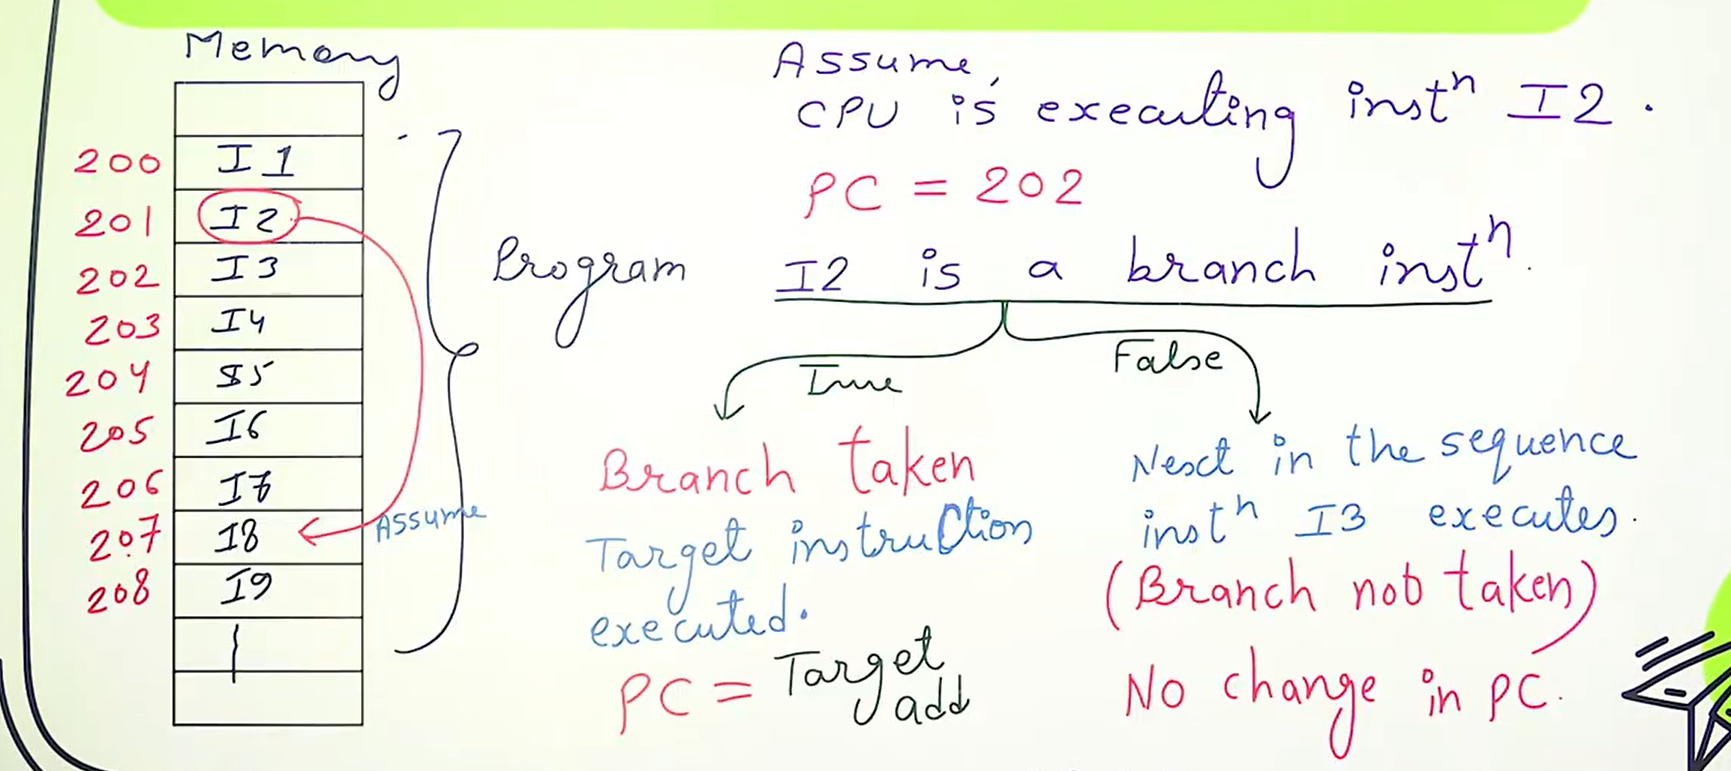 Memory
200 I1
201 I2
202 I3
203 I4
204 I5
205 I6
206 I7
207 I8
208 I9
Assume
Program
Assume,
CPU is executing instⁿ I2.
PC = 202
I2 is a branch instⁿ.
True
False
Branch taken
Target instruction
executed.
PC = Target
add
Next in the sequence
instⁿ I3 executes.
(Branch not taken)
No change in PC.